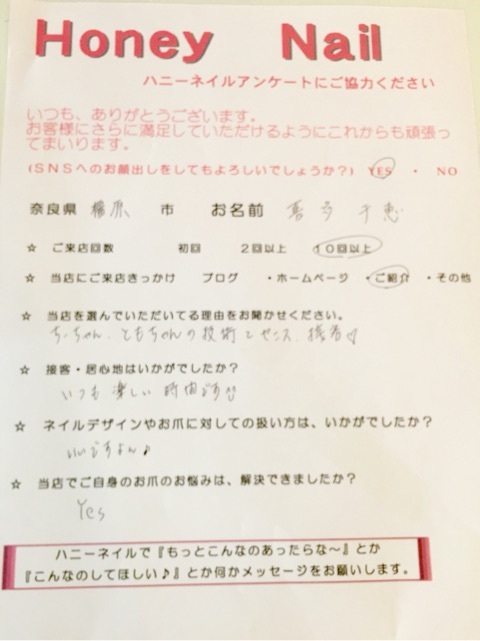 Honey Nail
ハニーネイルアンケートにご協力ください
いつも、ありがとうございます。
お客様にさらに満足していただけるようにこれからも頑張っ
てまいります。
(SNSへのお顔出しをしてもよろしいでしょうか?) YES ・ NO
奈良県 橿原 市 お名前 喜多 千恵
☆ ご来店回数 初回 2回以上 10回以上
☆ 当店にご来店きっかけ ブログ ・ホームページ ・ご紹介 ・その他
☆ 当店を選んでいただいてる理由をお聞かせください。
ちーちゃん、ともちゃんの技術とセンス、接客♡
☆ 接客・居心地はいかがでしたか?
いつも楽しい時間です
☆ ネイルデザインやお爪に対しての扱い方は、いかがでしたか?
いいですよん♪
☆ 当店でご自身のお爪のお悩みは、解決できましたか?
Yes
ハニーネイルで『もっとこんなのあったらな～』とか
『こんなのしてほしい♪』とか何かメッセージをお願いします。